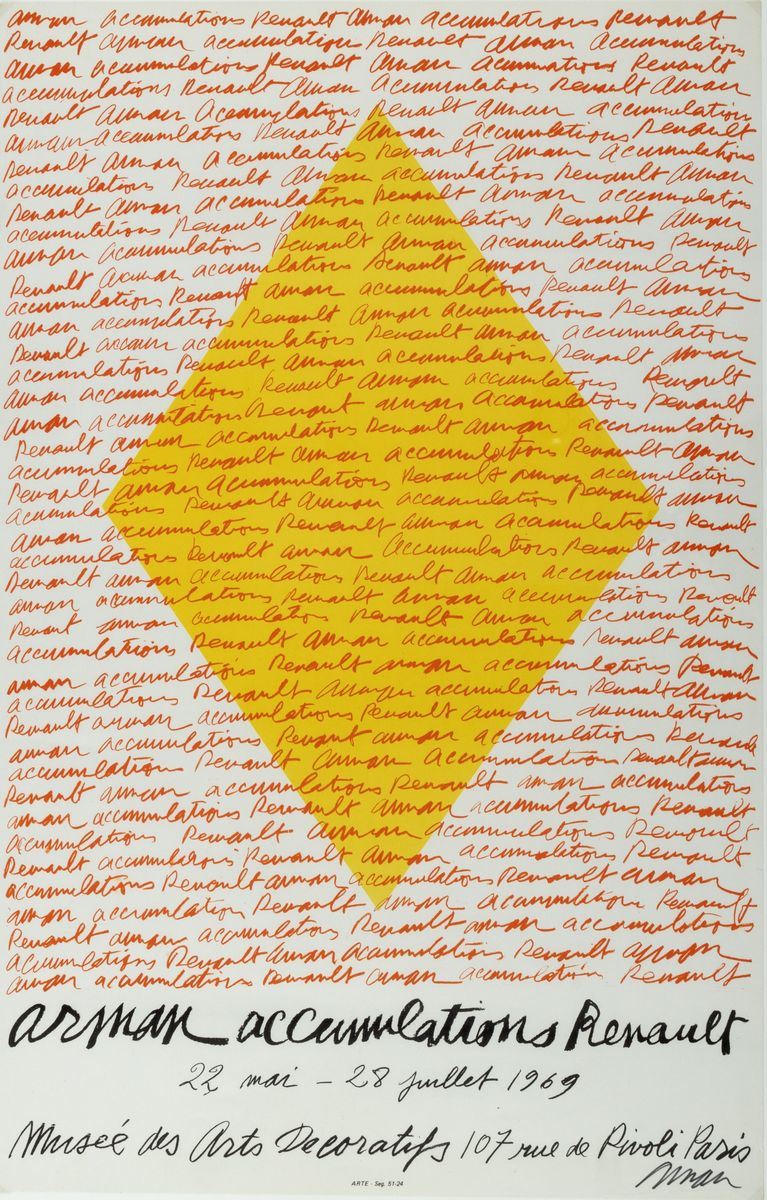 arman accumulations Renault arman accumulations Renault
Renault arman accumulations Renault arman Accumulations
arman accumulations Renault arman accumulations Renault
accumulations Renault arman accumulations Renault arman
Renault arman Accumulations Renault arman accumulations
arman accumulations Renault arman accumulations Renault
Renault arman accumulations Renault arman accumulations
accumulations Renault arman accumulations Renault arman
Renault arman accumulations Renault arman accumulations
accumulations Renault arman accumulations Renault arman
arman accumulations Renault arman accumulations Renault
Renault arman accumulations Renault arman accumulations
accumulations Renault arman accumulations Renault arman
arman accumulations Renault arman accumulations Renault
Renault arman accumulations Renault arman accumulations
accumulations Renault arman accumulations Renault arman
arman accumulations Renault arman accumulations Renault
arman accumulations Renault arman accumulations Renault
Renault arman accumulations Renault arman accumulations
accumulations Renault arman accumulations Renault arman
Renault arman accumulations Renault arman accumulations
accumulations Renault arman accumulations Renault arman
arman accumulations Renault arman accumulations Renault
accumulations Renault arman Accumulations Renault arman
Renault arman accumulations Renault arman accumulations
arman accumulations Renault arman accumulations Renault
Renault arman accumulations Renault arman accumulations
accumulations Renault arman accumulations Renault arman
arman accumulations Renault arman accumulations Renault
accumulations Renault arman accumulations Renault arman
Renault arman accumulations Renault arman accumulations
arman accumulations Renault arman accumulations Renault
accumulations Renault arman Accumulations Renault arman
Renault arman accumulations Renault arman accumulations
arman accumulations Renault arman accumulations Renault
accumulations Renault arman accumulations Renault
Renault accumulations Renault arman accumulations Renault
accumulations Renault arman accumulations Renault arman
arman accumulation Renault arman accumulations Renault
Renault arman accumulations Renault arman accumulations
accumulations Renault arman accumulations Renault arman
arman accumulations Renault arman accumulations Renault
arman accumulations Renault
22 mai - 28 juillet 1969
Musée des Arts Decoratifs 107 rue de Rivoli Paris
arman
ARTE - Seg. 51-24